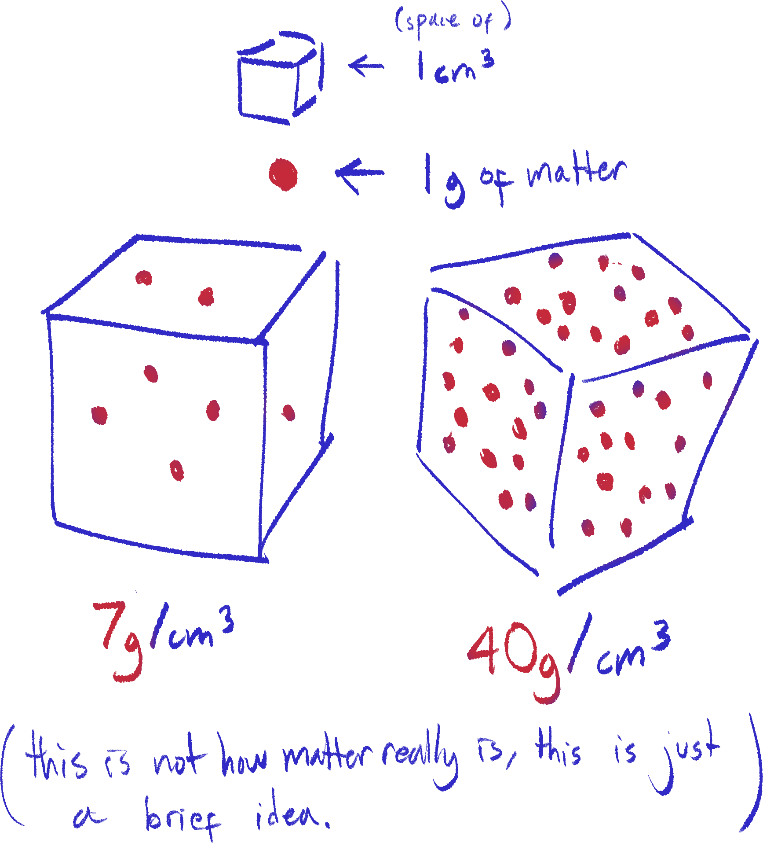 (space of)
← 1cm³
← 1g of matter
7g/cm³
40g/cm³
(this is not how matter really is, this is just
a brief idea.)